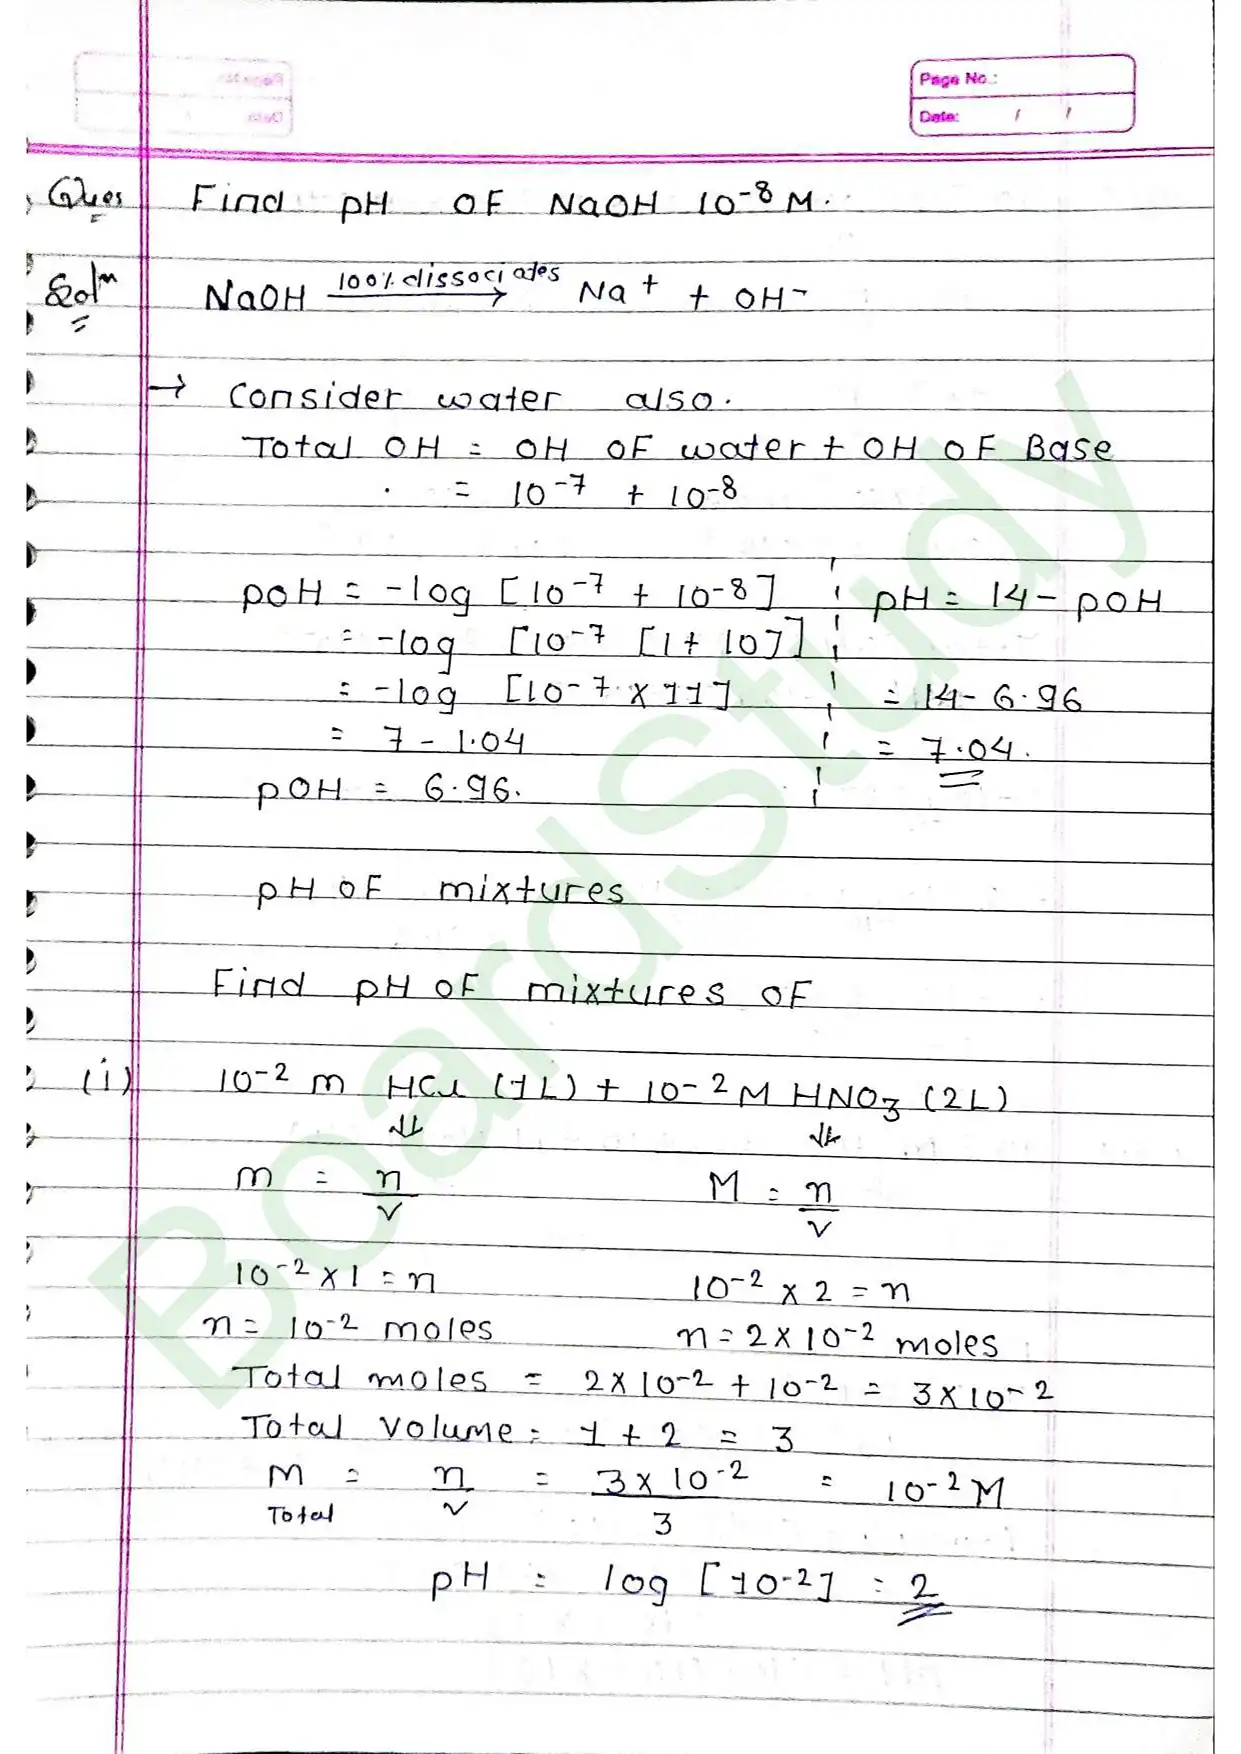 Page No.:
Date: / /
Ques Find pH OF NaOH 10⁻⁸ M.
Solⁿ NaOH 100% dissociates → Na⁺ + OH⁻
→ Consider water also.
Total OH = OH OF water + OH OF Base
= 10⁻⁷ + 10⁻⁸
pOH = -log [10⁻⁷ + 10⁻⁸] pH = 14 - pOH
= -log [10⁻⁷ [1+ 10]]
= -log [10⁻⁷ × 11] = 14 - 6.96
= 7 - 1.04 = 7.04.
pOH = 6.96.
pH OF mixtures
Find pH OF mixtures OF
(i) 10⁻² m HCl (1L) + 10⁻² M HNO₃ (2L)
m = n/v M = n/v
10⁻² × 1 = n 10⁻² × 2 = n
n = 10⁻² moles n = 2 × 10⁻² moles
Total moles = 2 × 10⁻² + 10⁻² = 3 × 10⁻²
Total Volume = 1 + 2 = 3
M Total = n/v = 3 × 10⁻²/3 = 10⁻² M
pH = log [10⁻²] = 2
BoardStudy